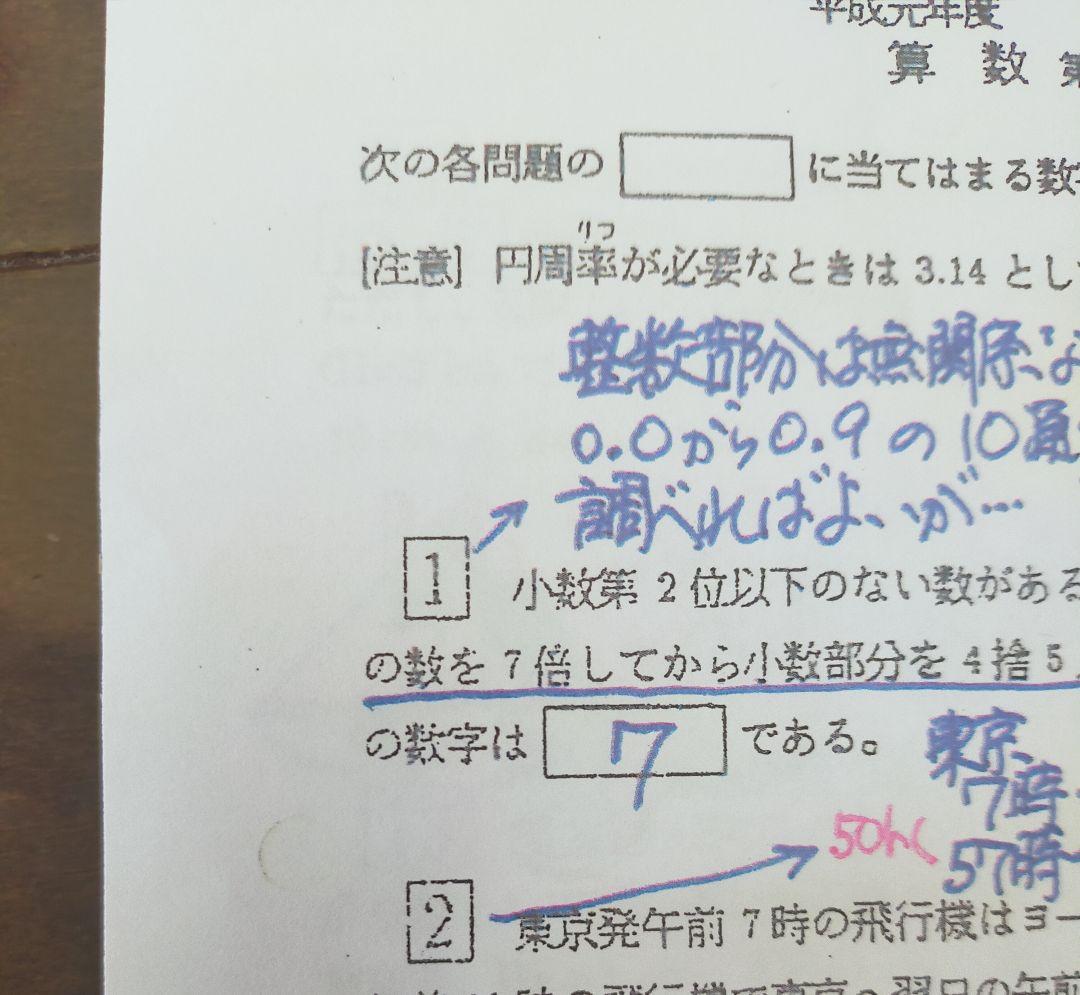 平成元年度
算 数 第
次の各問題の に当てはまる数字
りつ
[注意] 円周率が必要なときは 3.14 とし
整数部分は無関係な
0.0から0.9の10通
調べればよいが…
1
小数第 2 位以下のない数がある
の数を 7 倍してから小数部分を 4 捨 5
の数字は 7 である。
東京
7時
50hく
57時
2 東京発午前 7 時の飛行機はヨー
時の飛行機で東京へ翌日の午前